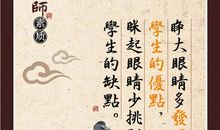 睜大眼睛多發
學生的優點，
眯起眼睛少挑
學生的缺點。
師
素质